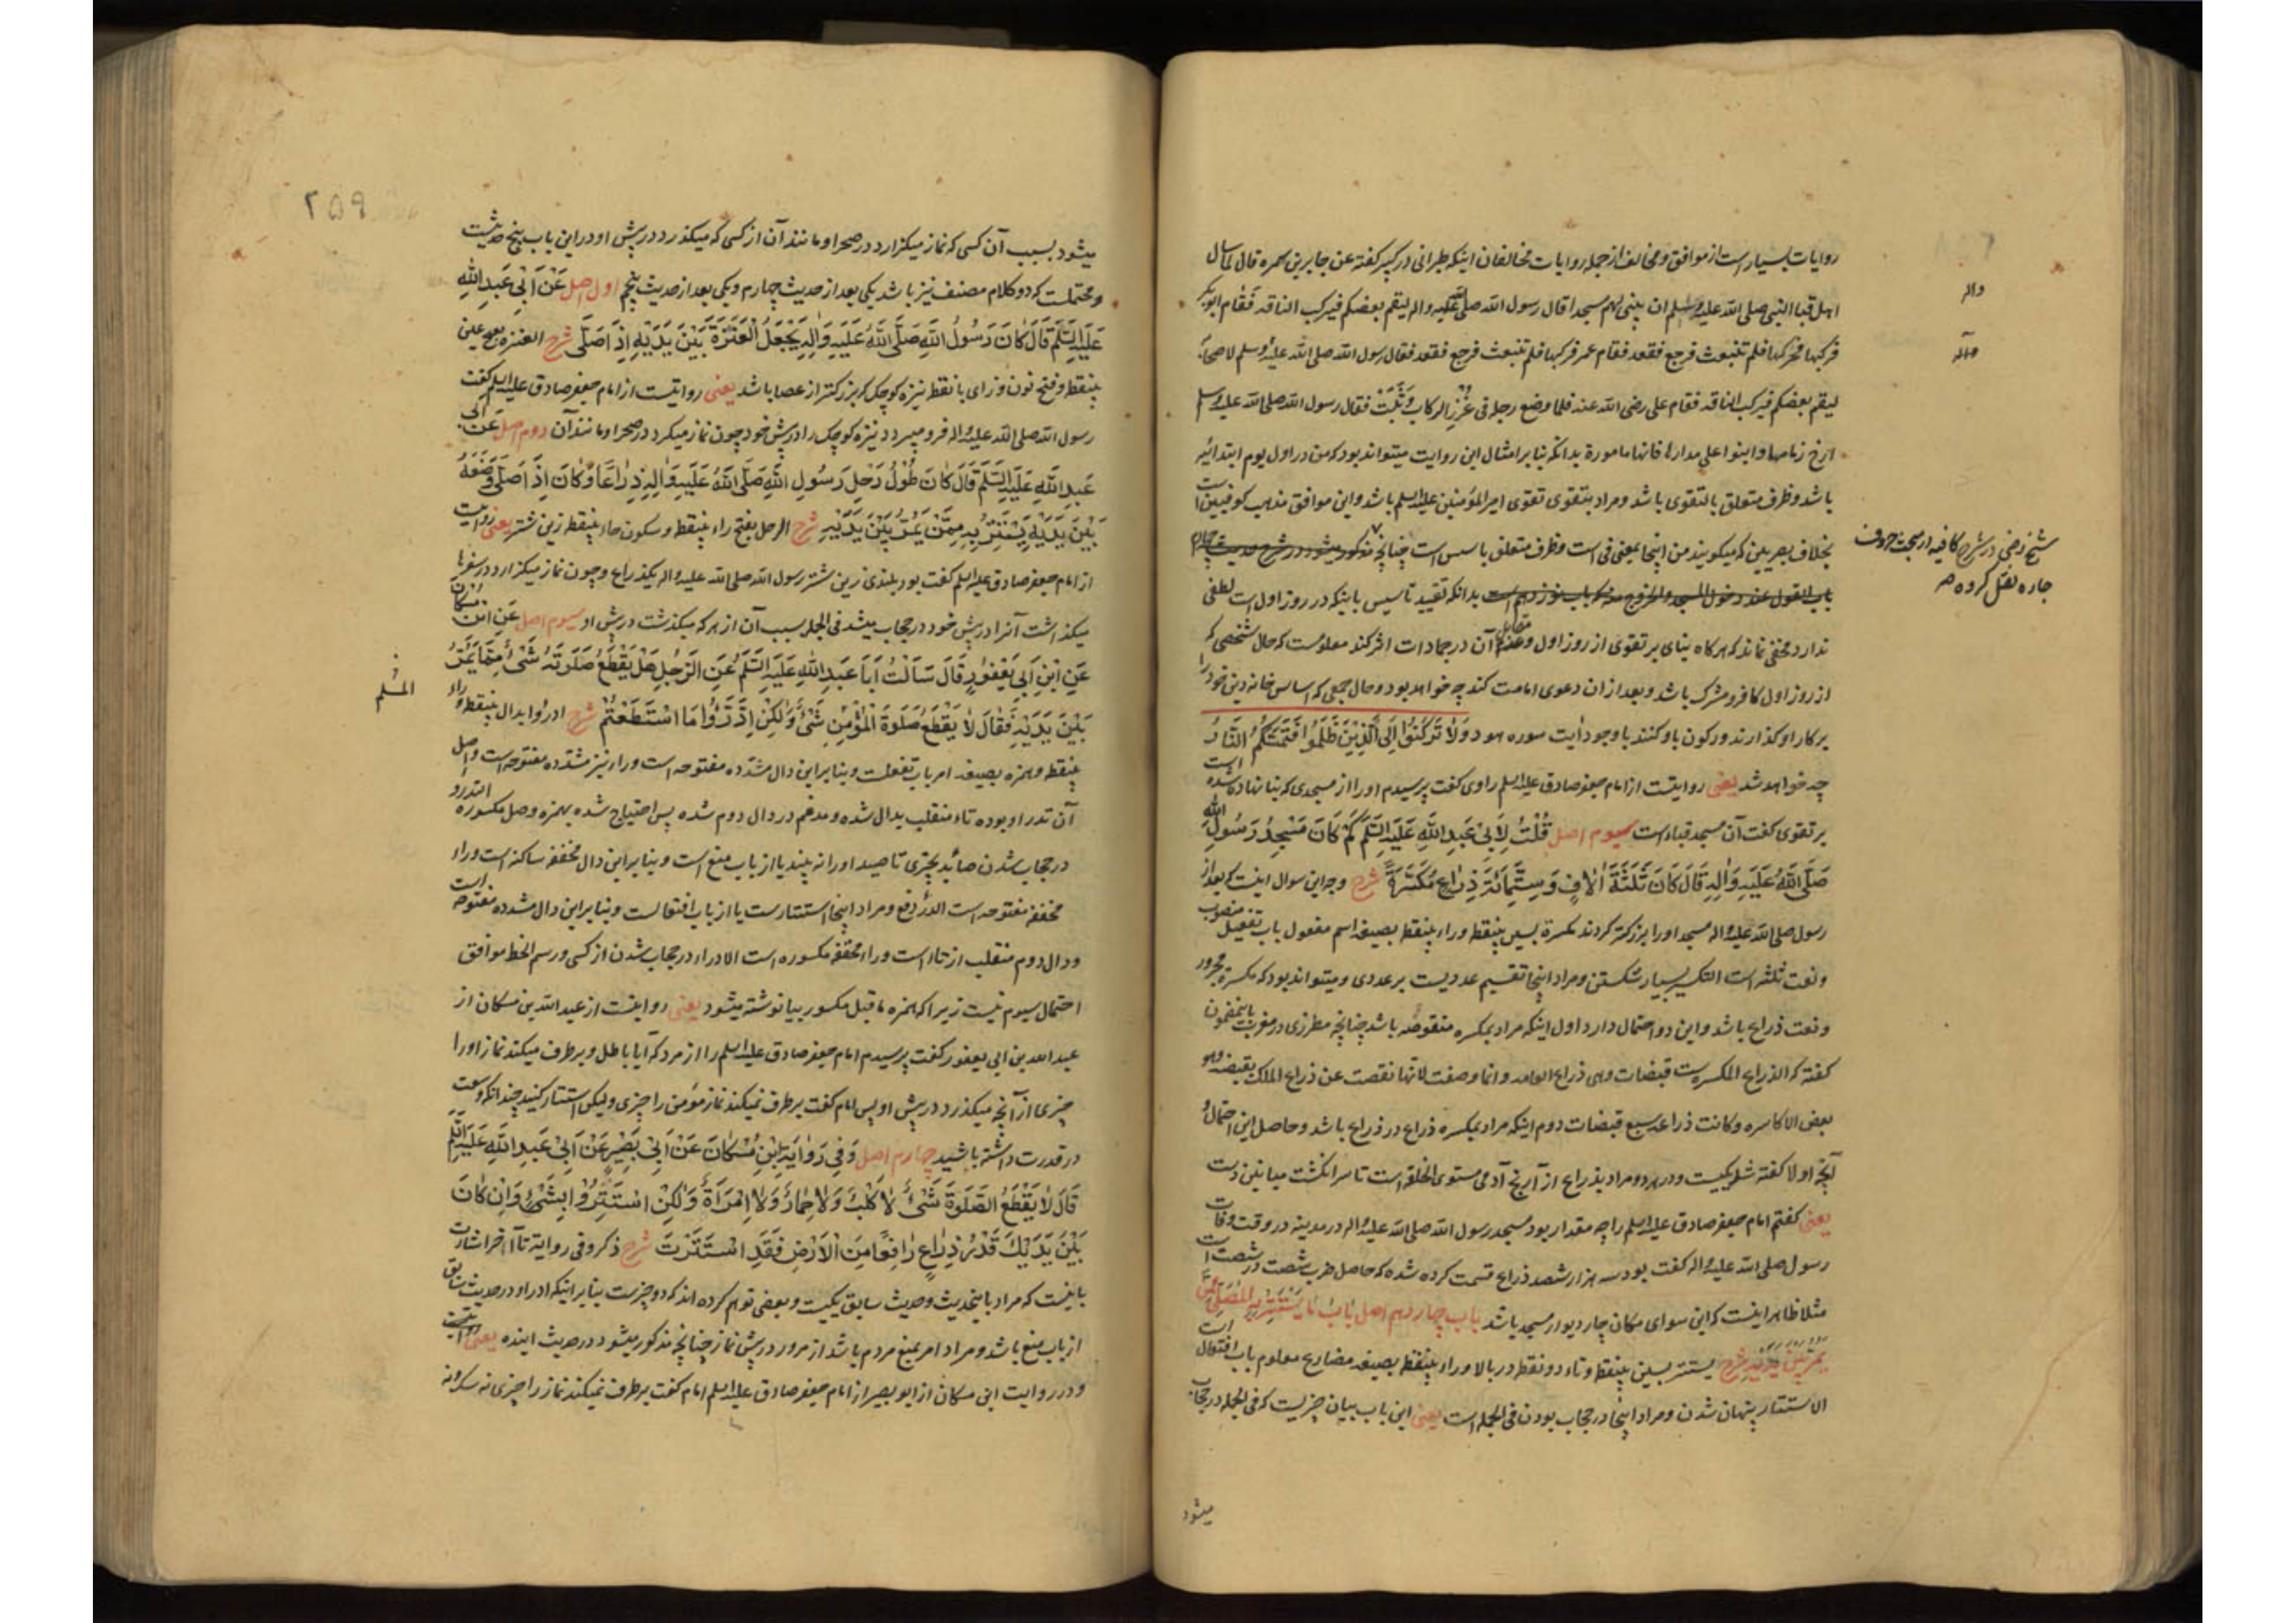 روایات بسیار است از موافق و مخالف از جمله روایات مخالفان اینکه طبرانی در کبیر گفته عن جابر بن سمره قال لما سال
اهل قبا النبی صلی الله علیه وسلم ان یبنی لهم مسجدا قال رسول الله صلی الله علیه واله لیقم بعضکم فیرکب الناقة فقام ابو بکر
واله
فرکبها فحرکها فلم تنبعث فرجع فقعد فقام عمر فرکبها فلم تنبعث فرجع فقعد فقال رسول الله صلی الله علیه وسلم لاصحابه
وآله
لیقم بعضکم فیرکب الناقة فقام علی رضی الله عنه فلما وضع رجله فی غرز الرکاب وثبت فقال رسول الله صلی الله علیه وسلم
ارخ زمامها وابنوا علی مدارها فانها مامورة بدانکه بنا بر امثال این روایت میتواند بود که من در اول یوم ابتدائیه
باشد و ظرف متعلق بالتقوی باشد و مراد بتقوی تقوی امیر المؤمنین علیه السلم باشد و این موافق مذهب کوفیین است
بخلاف بصریین که میگویند من اینجا بمعنی فی است و ظرف متعلق باسس است چنانچه مذکور میشود در شرح حدیث چهارم
شیخ رضی در شرح کافیه در مبحث حروف
جاره نقل کرده
باب القول عند دخول المسجد والخروج منه که باب نوزدهم است بدانکه تقیید تاسیس باینکه در روز اول است لطفی
ندارد مخفی نماند که هرگاه بنای بر تقوی از روز اول و مقابل آن در جمادات اثر کند معلوست که حال شخصی که
از روز اول کافر و مشرک باشد و بعد ازان دعوی امامت کند چه خواهد بود و حال جمعی که اساس خانه دین خود را
بر کار او گذارند و رکون باو کنند با وجود آیت سوره هود وَلَا تَرْكَنُوا إِلَى الَّذِينَ ظَلَمُوا فَتَمَسَّكُمُ النَّارُ
چه خواهد شد یعنی روایتست از امام جعفر صادق علیه السلم راوی گفت پرسیدم او را از مسجدی که بنا نهاده شده است
بر تقوی گفت آن مسجد قباء است سیوم اصل قُلْتُ لِأَبِي عَبْدِ اللّٰهِ عَلَيْهِ السَّلَمُ كَمْ كَانَ مَسْجِدُ رَسُولِ اللّٰه
صَلَّى اللّٰهُ عَلَيْهِ وَالِهِ قَالَ كَانَ ثَلٰثَةَ اٰلَافٍ وَسِتَّمِائَةِ ذِرَاعٍ مُكَسَّرَةً شرح وجه این سوال اینست که بعد از
رسول صلی الله علیه واله مسجد او را بزرگتر کردند مکسرة بسین بینقطه و راء بینقطه بصیغه اسم مفعول باب تفعیل منصوب
و نعت ثلثه است التکسیر بسیار شکستن و مراد اینجا تقسیم عددیست بر عددی و میتواند بود که مکسرة مجرور
و نعت ذراع باشد و این دو احتمال دارد اول اینکه مراد بمکسره منقوصه باشد چنانچه مطرزی در مغرب باینمضمون
گفته که الذراع المکسرة ست قبضات وهی ذراع العامه وانما وصفت لانها نقصت عن ذراع الملک بقبضة وهو
بعض الاکاسره وکانت ذراعه سبع قبضات دوم اینکه مراد بمکسره ذراع در ذراع باشد و حاصل این احتمال و
آنچه اولا گفته شد یکیست و در هر دو مراد بذراع از آرنج آدمی مستوی الخلقه است تا سر انگشت میانین دست
یعنی گفتم امام جعفر صادق علیه السلم را چه مقدار بود مسجد رسول الله صلی الله علیه واله در مدینه در وقت وفات
رسول صلی الله علیه واله گفت بود سه هزار و ششصد ذراع قسمت کرده شده که حاصل ضرب شصت در شصت است
مثلا ظاهر اینست که این سوای مکان چار دیوار مسجد باشد باب چهاردهم اصل بَابُ مَا يَسْتَتِرُ بِهِ الْمُصَلِّي مِمَّنْ
يَمُرُّ بَيْنَ يَدَيْهِ شرح یستتر بسین بینقطه و تاء دو نقطه در بالا و راء بینقطه بصیغه مضارع معلوم باب افتعال است
الاستتار پنهان شدن و مراد اینجا در حجاب بودن فی الجمله است یعنی این باب بیان چیزیست که فی الجمله در حجاب
میشود
۲۵۹
میشود بسبب آن کسی که نماز میگزارد در صحرا و مانند آن از کسی که میگذرد در پیش او در این باب پنج حدیثست
و محتملست که دو کلام مصنف نیز باشد یکی بعد از حدیث چهارم و یکی بعد از حدیث پنجم اول اصل عَنْ أَبِي عَبْدِ اللّٰهِ
عَلَيْهِ السَّلَمُ قَالَ كَانَ رَسُولُ اللّٰهِ صَلَّى اللّٰهُ عَلَيْهِ وَالِهِ يَجْعَلُ الْعَنَزَةَ بَيْنَ يَدَيْهِ إِذَا صَلَّى شرح العنزه بفتح عین
بینقطه و فتح نون و زای با نقطه نیزه کوچک که بزرگتر از عصا باشد یعنی روایتست از امام جعفر صادق علیه السلم گفت
رسول الله صلی الله علیه واله فرو میبرد نیزه کوچک را در پیش خود چون نماز میکرد در صحرا و مانند آن دوم اصل عَنْ أَبِي
عَبْدِ اللّٰهِ عَلَيْهِ السَّلَمُ قَالَ كَانَ طُولُ رَحْلِ رَسُولِ اللّٰهِ صَلَّى اللّٰهُ عَلَيْهِ وَالِهِ ذِرَاعًا وَكَانَ إِذَا صَلَّى وَضَعَهُ
بَيْنَ يَدَيْهِ يَسْتَتِرُ بِهِ مِمَّنْ يَمُرُّ بَيْنَ يَدَيْهِ شرح الرحل بفتح راء بینقطه و سکون حاء بینقطه زین شتر یعنی روایتست
از امام جعفر صادق علیه السلم گفت بود بلندی زین شتر رسول الله صلی الله علیه واله یکذراع و چون نماز میگزارد در سفرها
میگذاشت آنرا در پیش خود در حجاب میشد فی الجمله بسبب آن از هر که میگذشت در پیش او سیوم اصل عَنِ ابْنِ مُسْكَانَ
عَنِ ابْنِ أَبِي يَعْفُورٍ قَالَ سَأَلْتُ أَبَا عَبْدِ اللّٰهِ عَلَيْهِ السَّلَمُ عَنِ الرَّجُلِ هَلْ يَقْطَعُ صَلٰوتَهُ شَيْءٌ مِمَّا يَمُرُّ
بَيْنَ يَدَيْهِ فَقَالَ لَا يَقْطَعُ صَلٰوةَ الْمُؤْمِنِ شَيْءٌ وَلٰكِنِ ادَّرَؤُا مَا اسْتَطَعْتُمْ شرح ادرؤا بدال بینقطه و راء
المسلم
بینقطه و همزه بصیغه امر باب تفعلست و بنا بر این دال مشدّده مفتوحه است و راء نیز مشدّده مفتوحه است و اصل
آن تدرءوا بوده تاء منقلب بدال شده و مدغم در دال دوم شده پس احتیاج شده بهمزه وصل مکسوره التدرؤ
در حجاب شدن صائد بچیزی تا صید او را نه بیند یا از باب منع است و بنا بر این دال مخففه ساکنه است و راء
مخففه مفتوحه است الدرء دفع و مراد اینجا استتارست یا از باب افتعالست و بنا بر این دال مشدده مفتوحه است
و دال دوم منقلب از تاء است و راء مخففه مکسوره است الادراء در حجاب شدن از کسی و رسم الخط موافق
احتمال سیوم نیست زیرا که همزه ما قبل مکسور بیا نوشته میشود یعنی روایتست از عبد الله بن مسکان از
عبد الله بن ابی یعفور گفت پرسیدم امام جعفر صادق علیه السلم را از مرد که آیا باطل و برطرف میکند نماز او را
چیزی از آنچه میگذرد در پیش او پس امام گفت برطرف نمیکند نماز مؤمن را چیزی و لیکن استتار کنید چندانکه وسعت
در قدرت داشته باشید چهارم اصل وَفِي رِوَايَةِ ابْنِ مُسْكَانَ عَنْ أَبِي بَصِيرٍ عَنْ أَبِي عَبْدِ اللّٰهِ عَلَيْهِ السَّلَمُ
قَالَ لَا يَقْطَعُ الصَّلٰوةَ شَيْءٌ لَا كَلْبٌ وَلَا حِمَارٌ وَلَا امْرَأَةٌ وَلٰكِنِ اسْتَتِرُوا بِشَيْءٍ وَإِنْ كَانَ
بَيْنَ يَدَيْكَ قَدْرُ ذِرَاعٍ رَافِعًا مِنَ الْأَرْضِ فَقَدِ اسْتَتَرْتَ شرح ذکر و فی روایة تا آخر اشارت
باینست که مراد باینحدیث و حدیث سابق یکیست و بعضی توهم کرده اند که دو چیزست بنا بر اینکه ادرءوا در حدیث سابق
از باب منع باشد و مراد امر بمنع مردم باشد از مرور در پیش نماز چنانچه مذکور میشود در حدیث آینده یعنی
و در روایت ابن مسکان از ابو بصیر از امام جعفر صادق علیه السلم امام گفت برطرف نمیکند نماز را چیزی نه سگ و نه